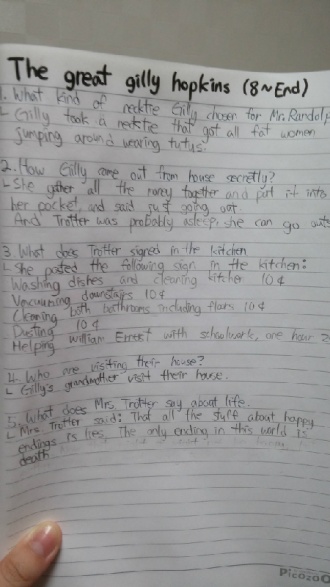 The great gilly hopkins (8~End)
1. What kind of necktie Gilly choser for Mr. Randolp
L Gilly took a necktie that got all fat women
jumping around wearing tutus.
2. How Gilly come out from house secretly?
L She gather all the money together and put it into
her pocket, and said just going out.
And Trotter was probably asleep, she can go outs
3. What does Trotter signed in the kitchen
L She posted the following sign in the kitchen:
Washing dishes and cleaning kitchen 10¢
Vacuuming downstairs 10¢
Cleaning both bathrooms including floors 10¢
Dusting 10¢
Helping William Ernest with schoolwork, one hour 2
4. Who are visiting their house?
L Gilly's grandmother visit their house.
5. What does Mrs. Trotter say about life.
L Mrs. Trotter said: That all the stuff about happy
endings is lies. The only ending in this world is
death
Picoza